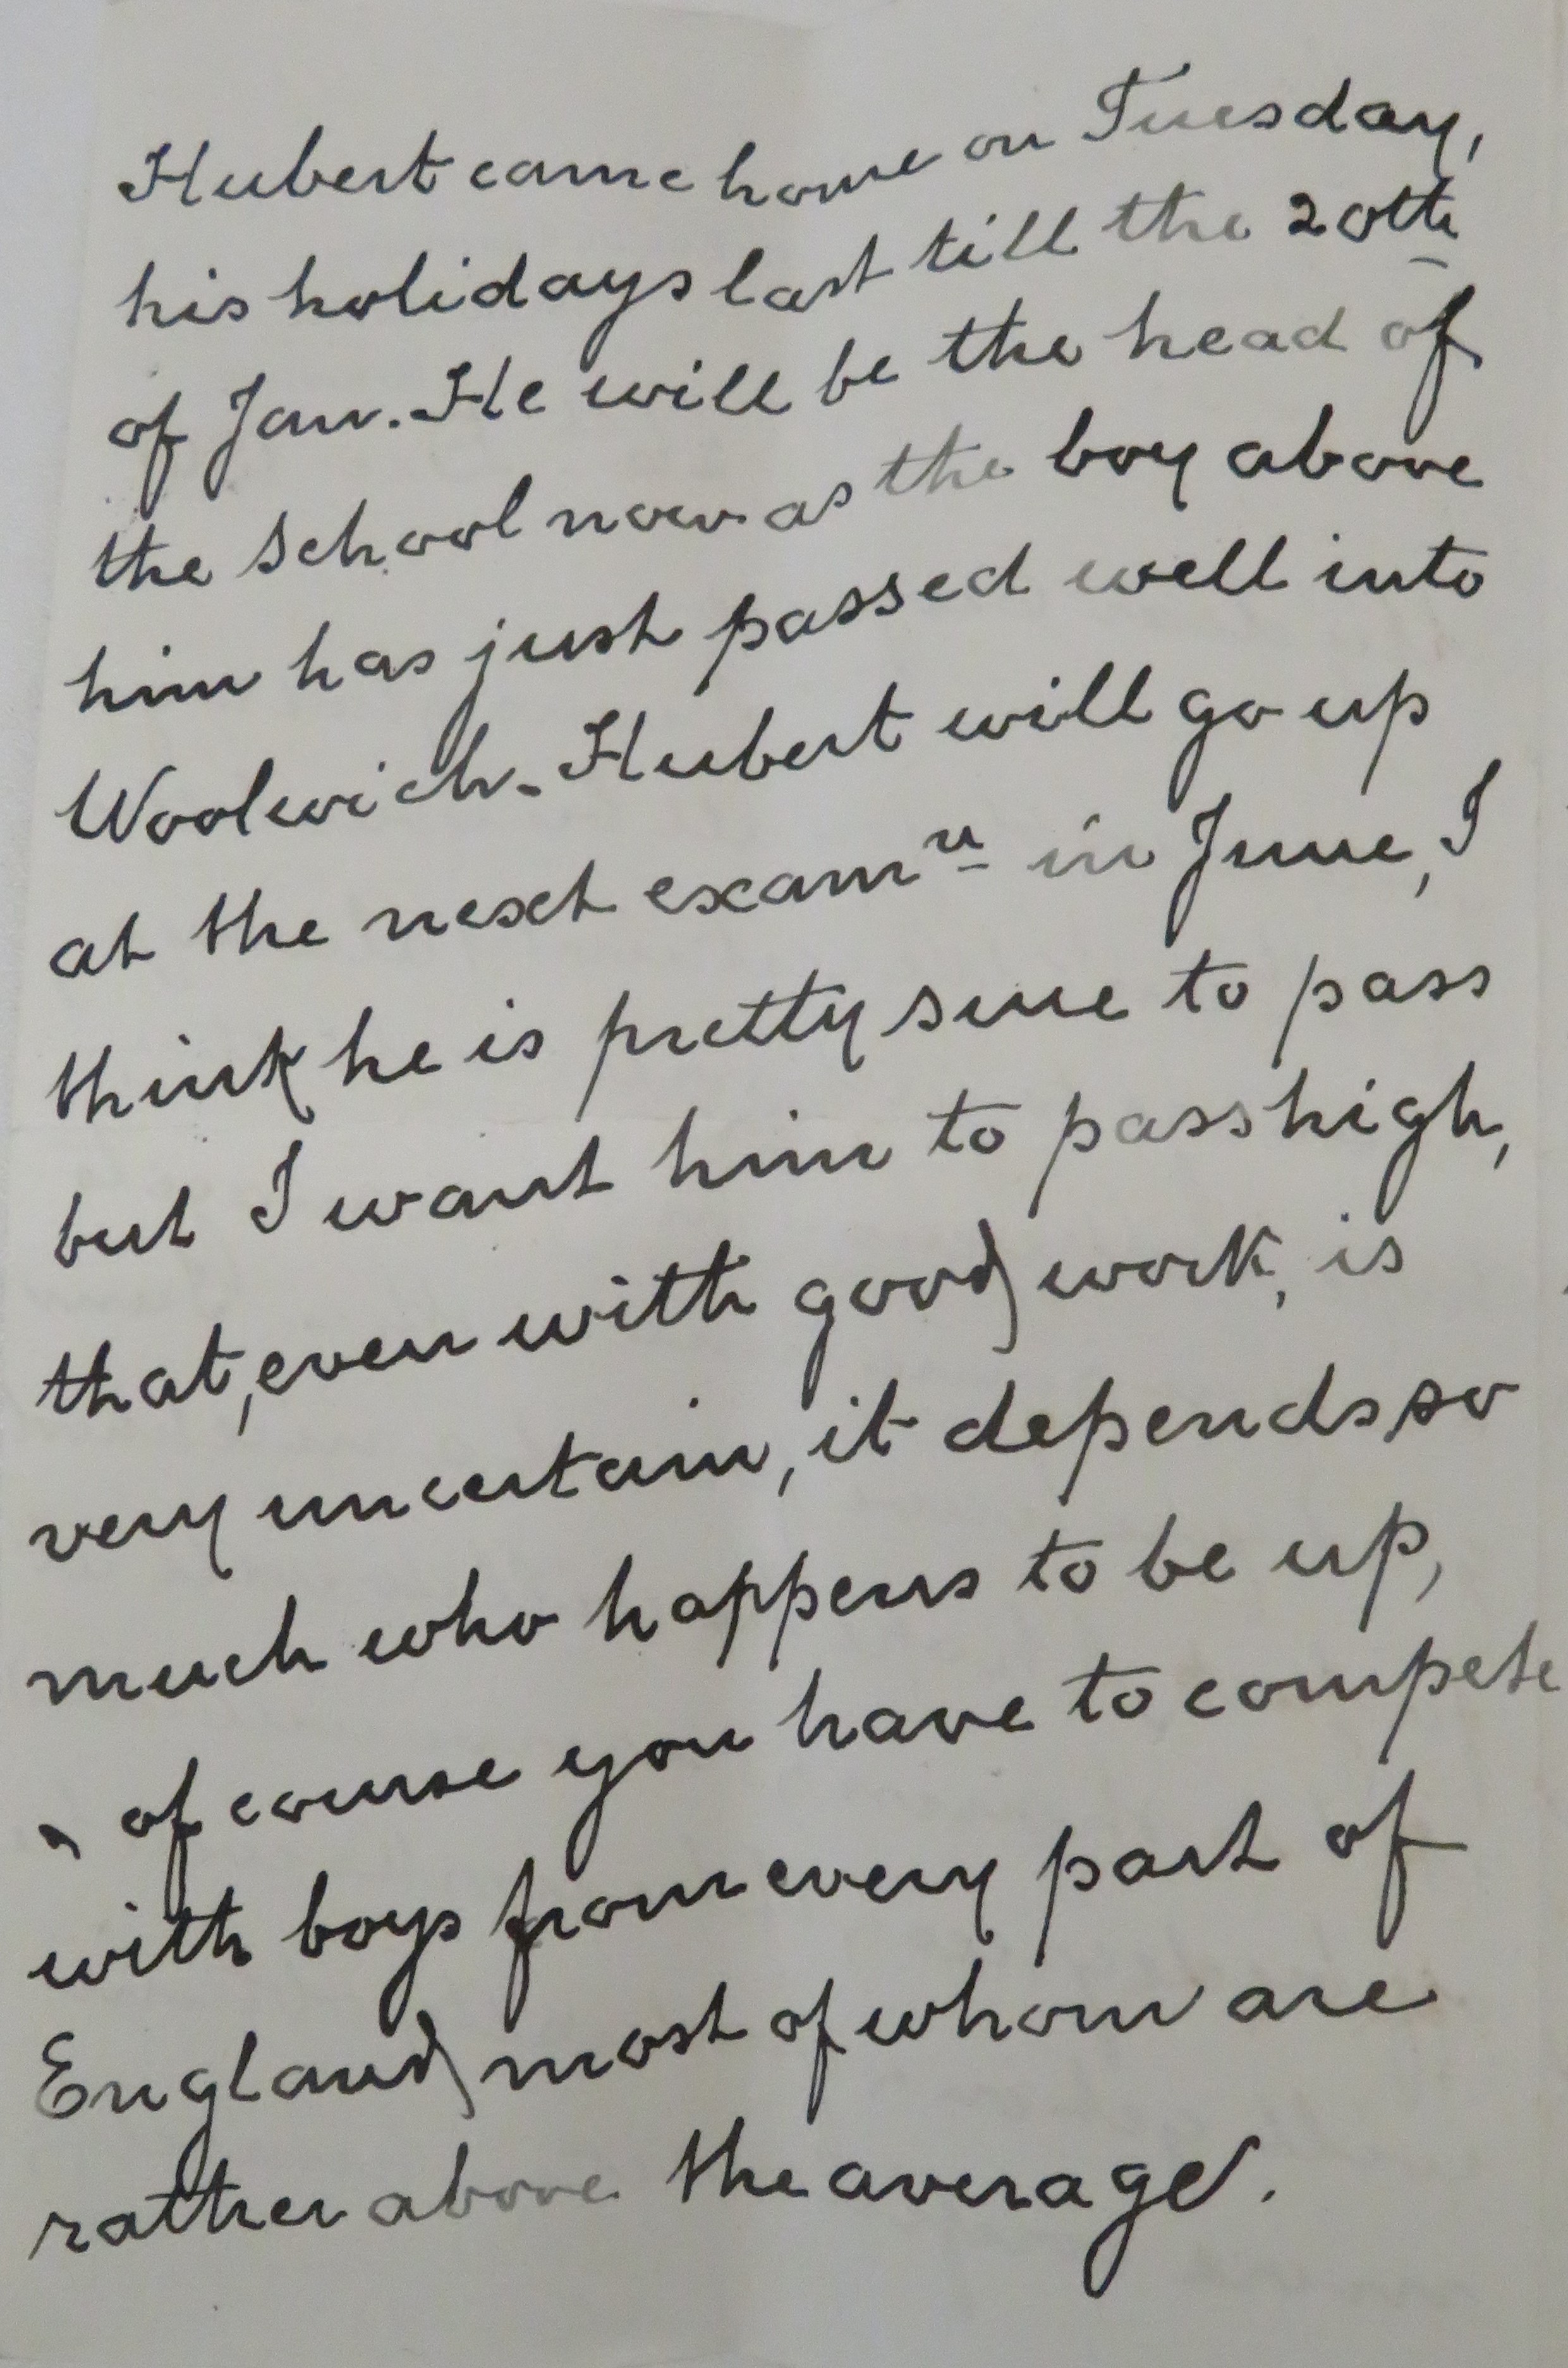 Hubert came home on Tuesday,
his holidays last till the 20th
of Jan. He will be the head of
the School now as the boy above
him has just passed well into
Woolwich. Hubert will go up
at the next examⁿ in June, I
think he is pretty sure to pass
but I want him to pass high,
that, even with good work, is
very uncertain, it depends so
much who happens to be up,
, of course you have to compete
with boys from every part of
England most of whom are
rather above the average.